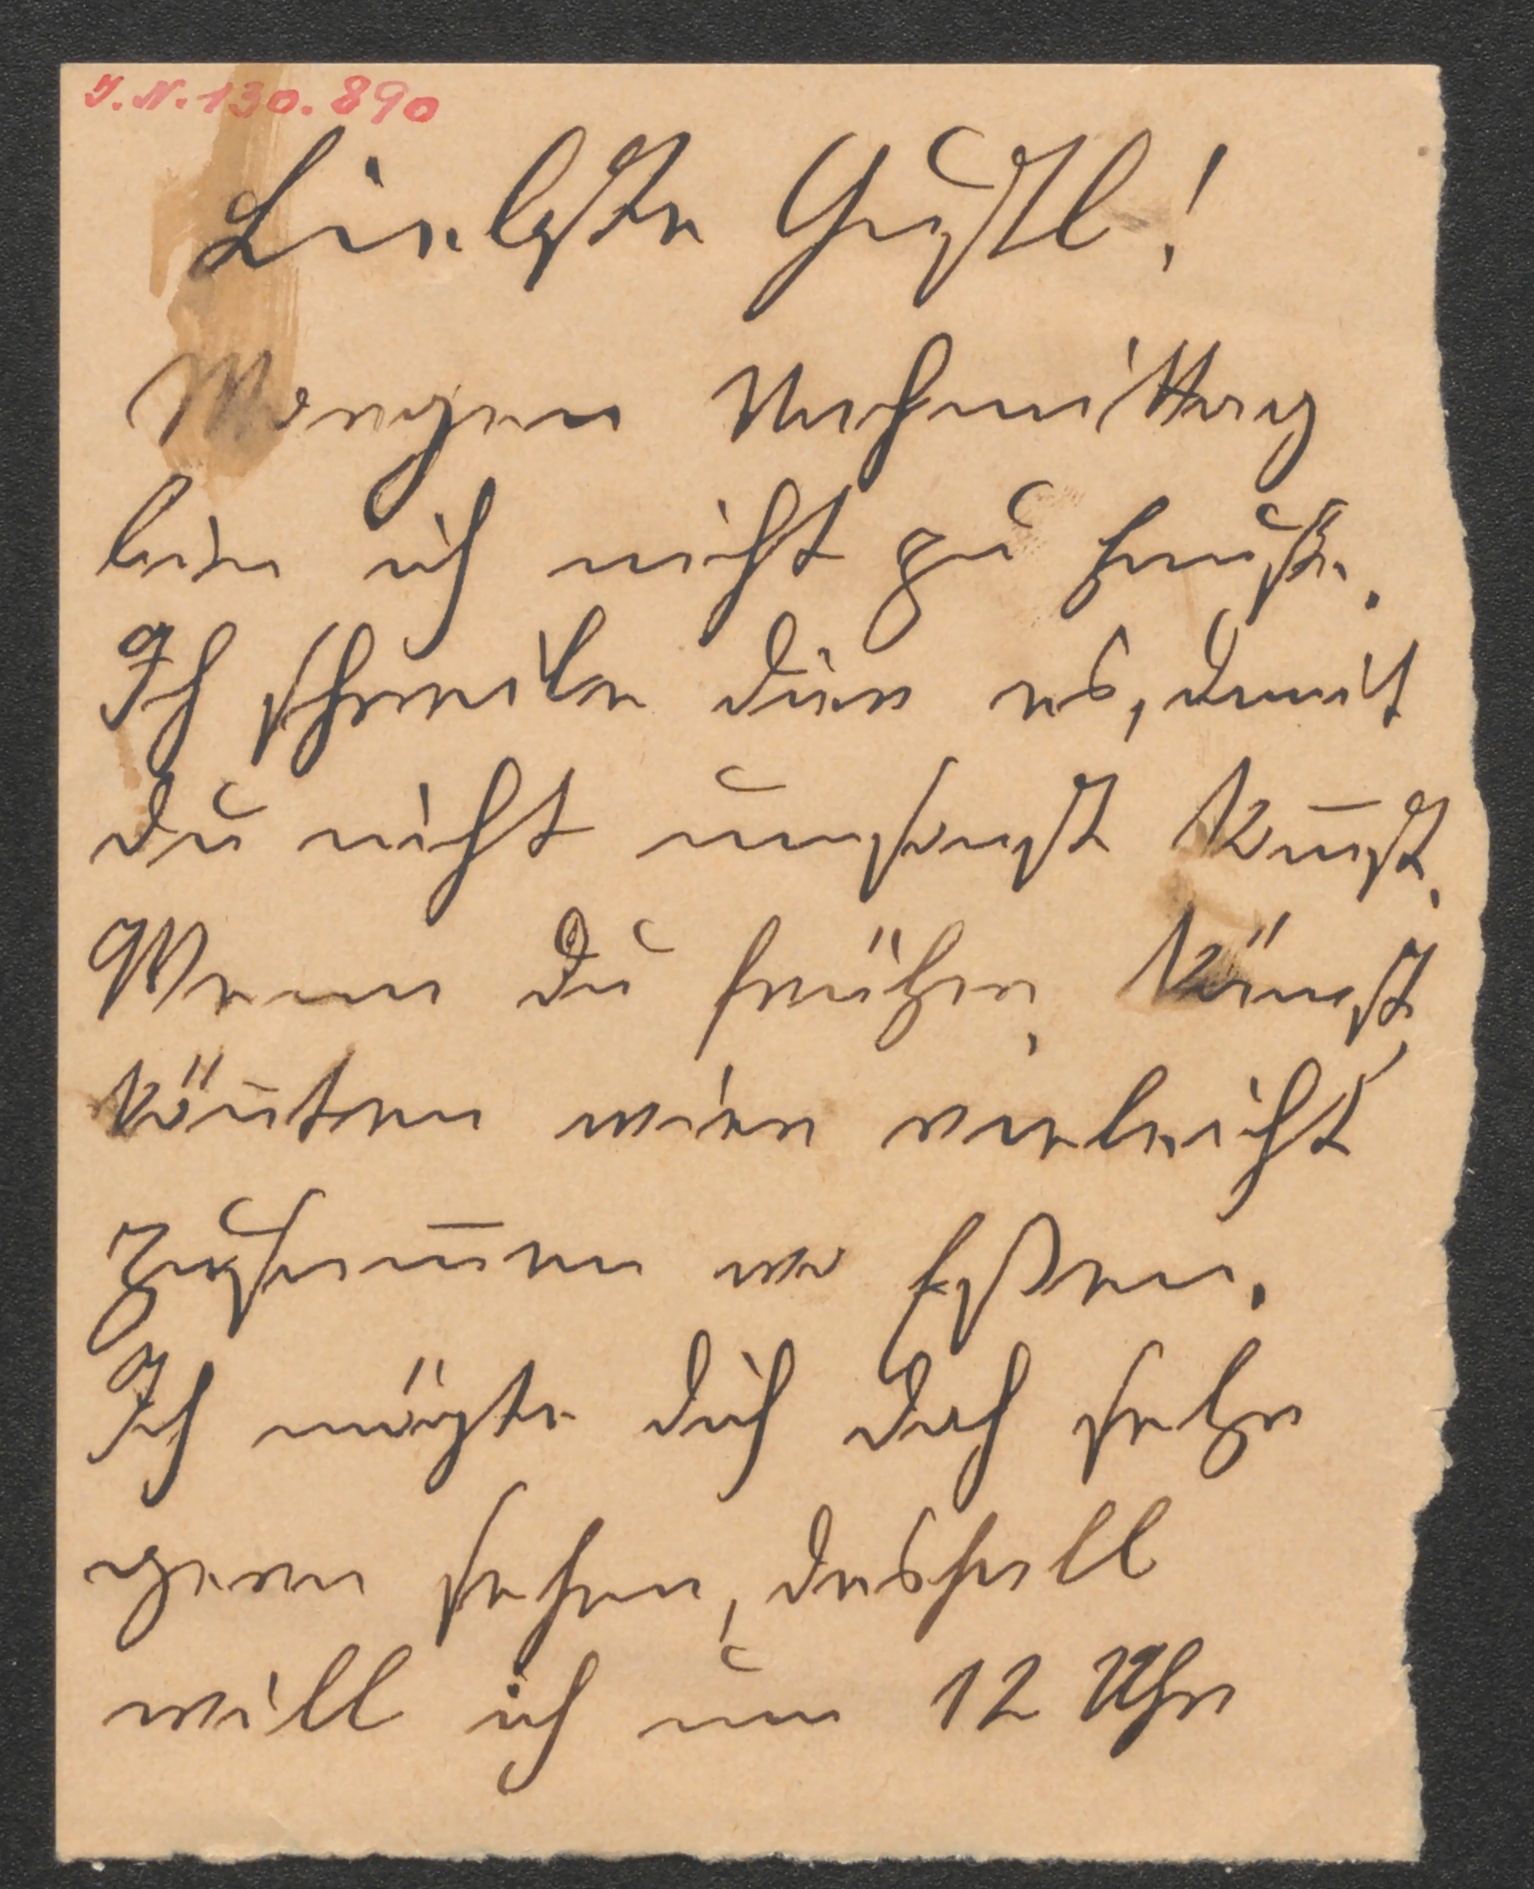 J.N. 130.890
Liebste Gustl!
Morgen Nachmittag
bin ich nicht zu Hause.
Ich schreibe dir es, damit
du nicht umsonst kom̄st.
Wenn du früher, kämst,
kön̄ten wir vieleicht
zusam̄en wo Eßen.
Ich mögte dich doch sehr
gern sehen, deshall
will ich um 12 Uhr